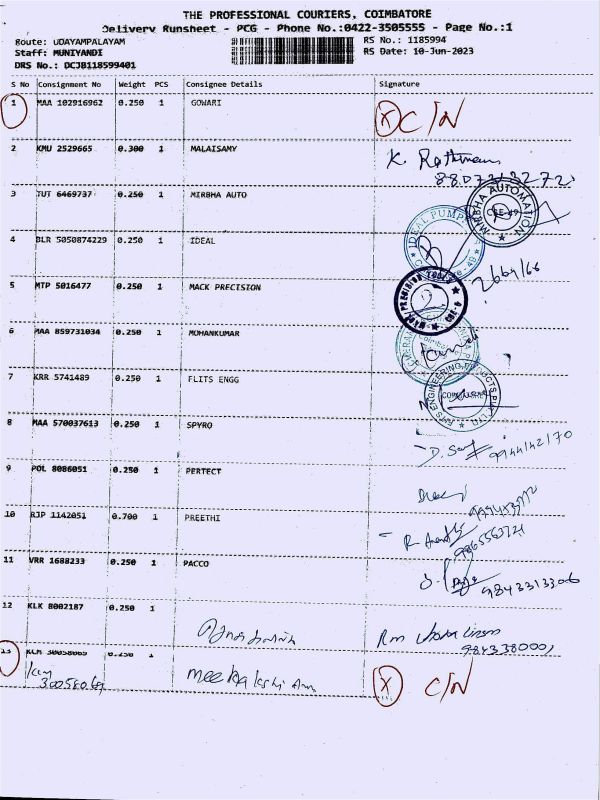 THE PROFESSIONAL COURIERS, COIMBATORE
Delivery Runsheet - PCG - Phone No.:0422-3505555 - Page No.:1
Route: UDAYAMPALAYAM RS No.: 1185994
Staff: MUNIYANDI RS Date: 10-Jun-2023
DRS No.: DCJB118599401
S No Consignment No Weight PCS Consignee Details Signature
1 MAA 102916962 0.250 1 GOWARI X C/N
2 KMU 2529665 0.300 1 MALAISAMY K.
3 TUT 6469737 0.250 1 MIRBHA AUTO MIRBHA AUTOMATION CBE-49
4 BLR 5050874229 0.250 1 IDEAL IDEAL PUMP
5 MTP 5016477 0.250 1 MACK PRECISION
6 MAA 859731034 0.250 1 MOHANKUMAR
7 KRR 5741489 0.250 1 FLITS ENGG
8 MAA 570037613 0.250 1 SPYRO 9944142170
9 POL 8086051 0.250 1 PERTECT
10 RJP 1142051 0.700 1 PREETHI
11 VRR 1688233 0.250 1 PACCO 9843313306
12 KLK 8002187 0.250 1
9843380001
13 KLM 30058069 0.250 1
X C/N